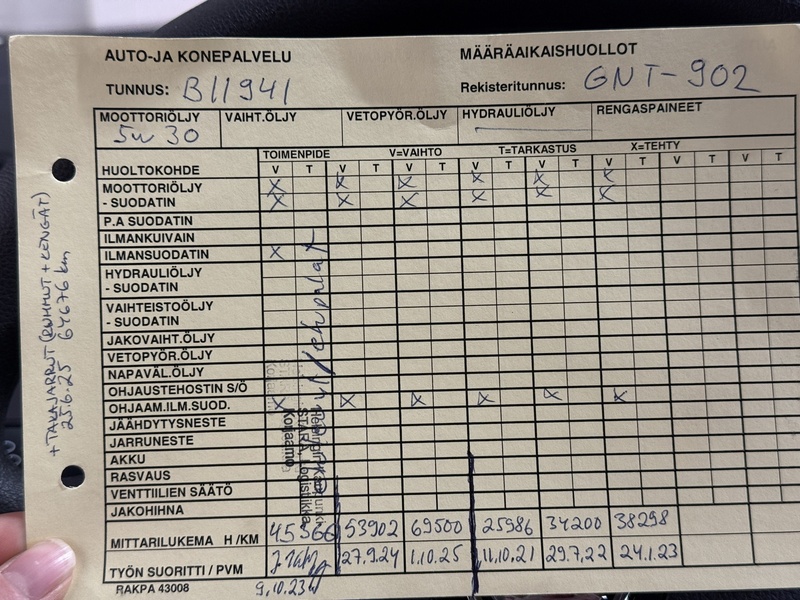 AUTO-JA KONEPALVELU
MÄÄRÄAIKAISHUOLLOT
TUNNUS: B11941
Rekisteritunnus: GNT-902
MOOTTORIÖLJY VAIHT.ÖLJY VETOPYÖR.ÖLJY HYDRAULIÖLJY RENGASPAINEET
5W30
TOIMENPIDE V=VAIHTO T=TARKASTUS X=TEHTY
HUOLTOKOHDE V T V T V T V T V T V T V T V T
MOOTTORIÖLJY X X X X X X
- SUODATIN X X X X X X
P.A SUODATIN
ILMANKUIVAIN
ILMANSUODATIN X
HYDRAULIÖLJY
- SUODATIN
VAIHTEISTOÖLJY
- SUODATIN
JAKOVAIHT.ÖLJY
VETOPYÖR.ÖLJY
NAPAVÄL.ÖLJY
OHJAUSTEHOSTIN S/Ö
OHJAAM.ILM.SUOD. X X X X X X
JÄÄHDYTYSNESTE
JARRUNESTE
AKKU
RASVAUS
VENTTIILIEN SÄÄTÖ
JAKOHIHNA
MITTARILUKEMA H /KM 45366 53902 69500 25986 34200 38298
TYÖN SUORITTI / PVM 27.9.24 1.10.25 11.10.21 29.7.22 24.1.23
RAKPA 43008 9.10.23
+ TAKAJARRUT (RUMMUT + KENGÄT)
25.6.25 64676 km
STARA, Logistiikka
Korjaamo